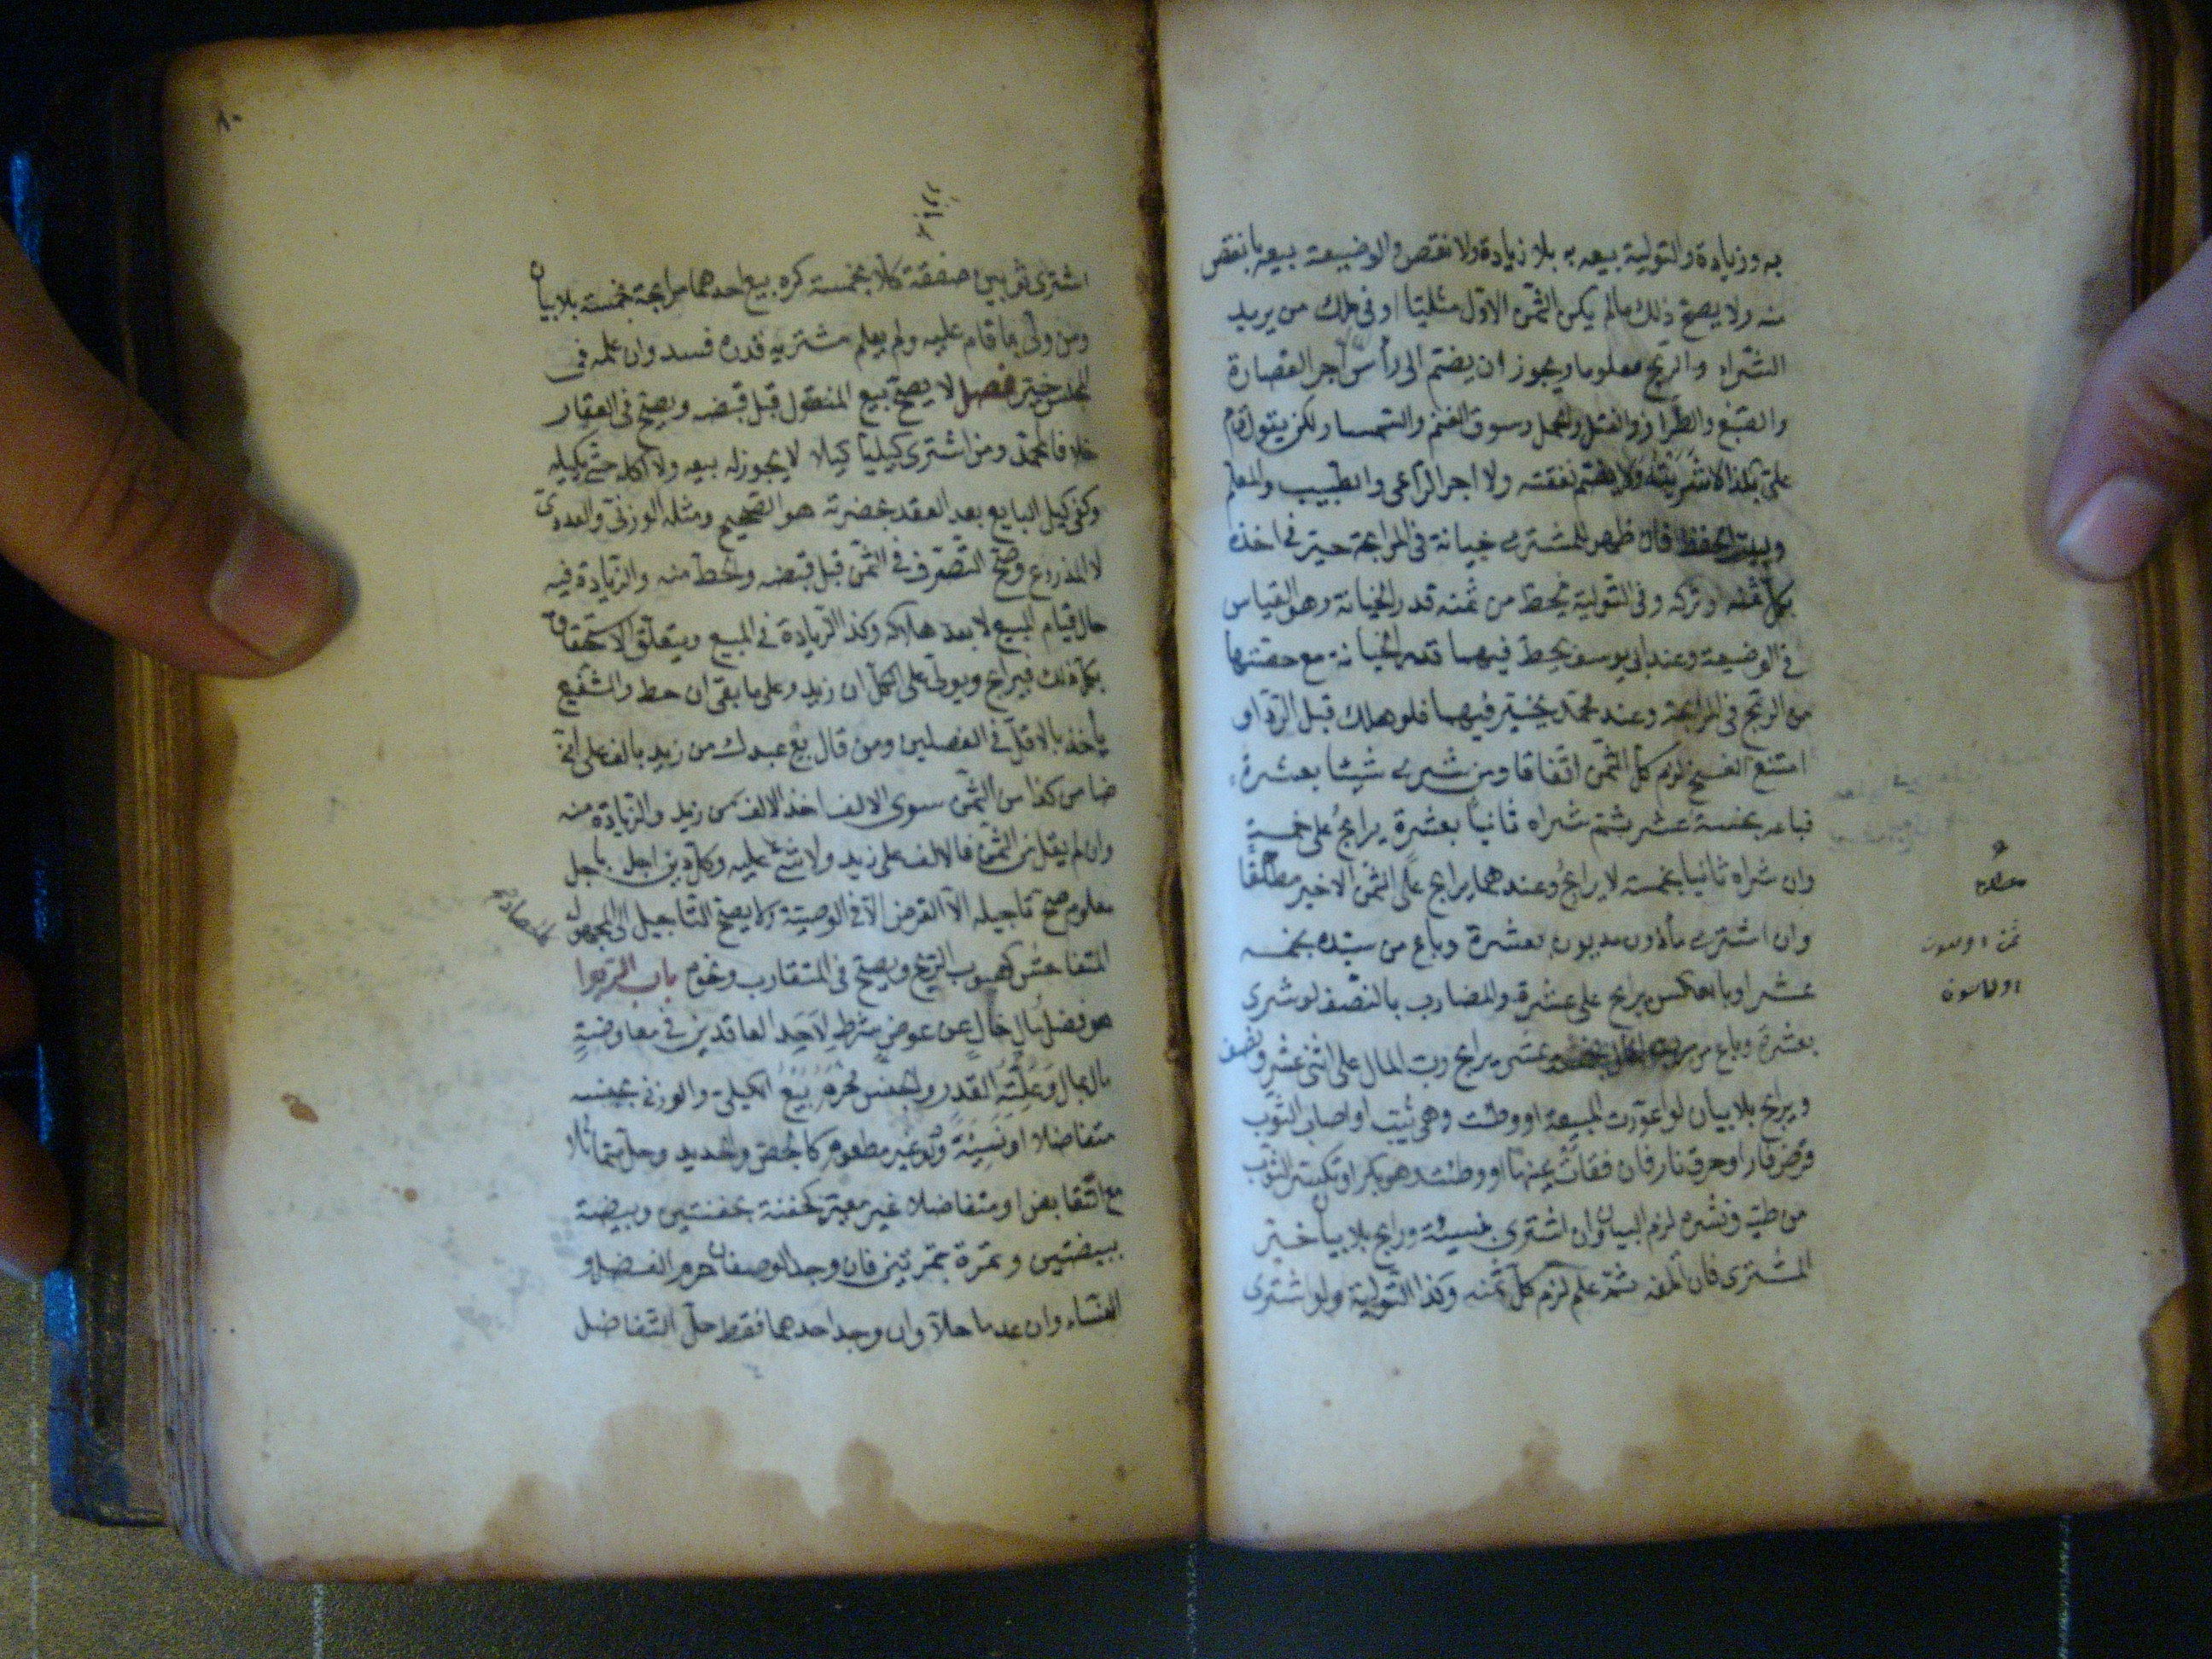 به وزيادة والتولية بيعه به بلا زيادة ولا نقص والوضيعة بيعه بانقص
منه ولا يصح ذلك مالم يكن الثمن الاول مثليا او فى ملك من يريد
الشراء والربح معلوما ويجوز ان يضم الى رأس اجر القصارة
والصبغ والطراز والفتل والحمل وسوق الغنم والسمسار لكن يقول قام
على بكذا لا اشتريته ولا يضم نفقته ولا اجر الراعى والطبيب والمعلم
وبيت الحفظ فان ظهر للمشترى خيانة فى المرابحة خير فى اخذه
بكل ثمنه او تركه وفى التولية يحط من ثمنه قدر الخيانة وهو القياس
فى الوضيعة وعند ابى يوسف يحط فيهما قدر الخيانة مع حصتها
من الربح فى المرابحة وعند محمد يخير فيهما فلو هلك قبل الرد او
امتنع الفسخ لزم كل الثمن اتفاقا ومن شرى شيئا بعشرة
فباعه بخمسة عشر ثم شراه ثانيا بعشرة يرابح على خمسة
وان شراه ثانيا بخمسة لا يرابح وعندهما يرابح على الثمن الاخير مطلقا
وان اشترى مأذون مديون بعشرة وباع من سيده بخمسة
عشر او بالعكس يرابح على عشرة والمضارب بالنصف لو شرى
بعشرة وباع من رب المال بخمسة عشر يرابح رب المال على اثنى عشر ونصف
ويرابح بلا بيان لو اعورت المبيعة او وطئت وهى ثيب او اصاب الثوب
قرض فار او حرق نار فان فقأت عينها او وطئت وهو بكر او تكسر الثوب
من طيه ونشره لزم البيان وان اشترى بنسيئة ورابح بلا بيان خير
المشترى فان اتلفه ثم علم لزم كل ثمنه وكذا التولية ولو اشترى
٨٠
اشترى ثوبين صفقة كلا بخمسة كره بيع احدهما مرابحة بخمسة بلا بيان
ومن ولى بما قام عليه ولم يعلم مشتريه قدره فسد وان علمه فى
المجلس خير فصل لا يصح بيع المنقول قبل قبضه ويصح فى العقار
خلافا لمحمد ومن اشترى كيليا كيلا لا يجوز له بيعه ولا اكله حتى يكيله
وكفى كيل البايع بعد العقد بحضرته هو الصحيح ومثله الوزنى والعددى
لا المذروع وصح التصرف فى الثمن قبل قبضه والحط منه والزيادة فيه
حال قيام المبيع لا بعد هلاكه وكذا الزيادة فى المبيع ويتعلق الاستحقاق
بكل ذلك فيرابح ويولى على الكل ان زيد وعلى ما بقى ان حط والشفيع
يأخذ بالاقل فى الفصلين ومن قال بع عبدك من زيد بالف على انى
ضامن كذا من الثمن سوى الالف اخذ الالف من زيد والزيادة منه
وان لم يقل من الثمن فالالف على زيد ولا شئ عليه وكل دين اجل باجل
معلوم صح تاجيله الا القرض الا فى الوصية ولا يصح التاجيل الى المجهول
المتفاحش كهبوب الريح ويصح فى المتقارب ونحوه باب الربوا
هو فضل مال خال عن عوض شرط لاحد العاقدين فى معاوضة
مال بمال وعلته القدر والجنس فحرم بيع الكيلى والوزنى بجنسه
متفاضلا او نسيئة ولو غير مطعوم كالجص والحديد وحل متماثلا
مع التقابض او متفاضلا غير معير كحفنة بحفنتين وبيضة
ببيضتين وتمرة بتمرتين فان وجد الوصفان حرم الفضل و
النساء وان عدما حلا وان وجد احدهما فقط حل التفاضل